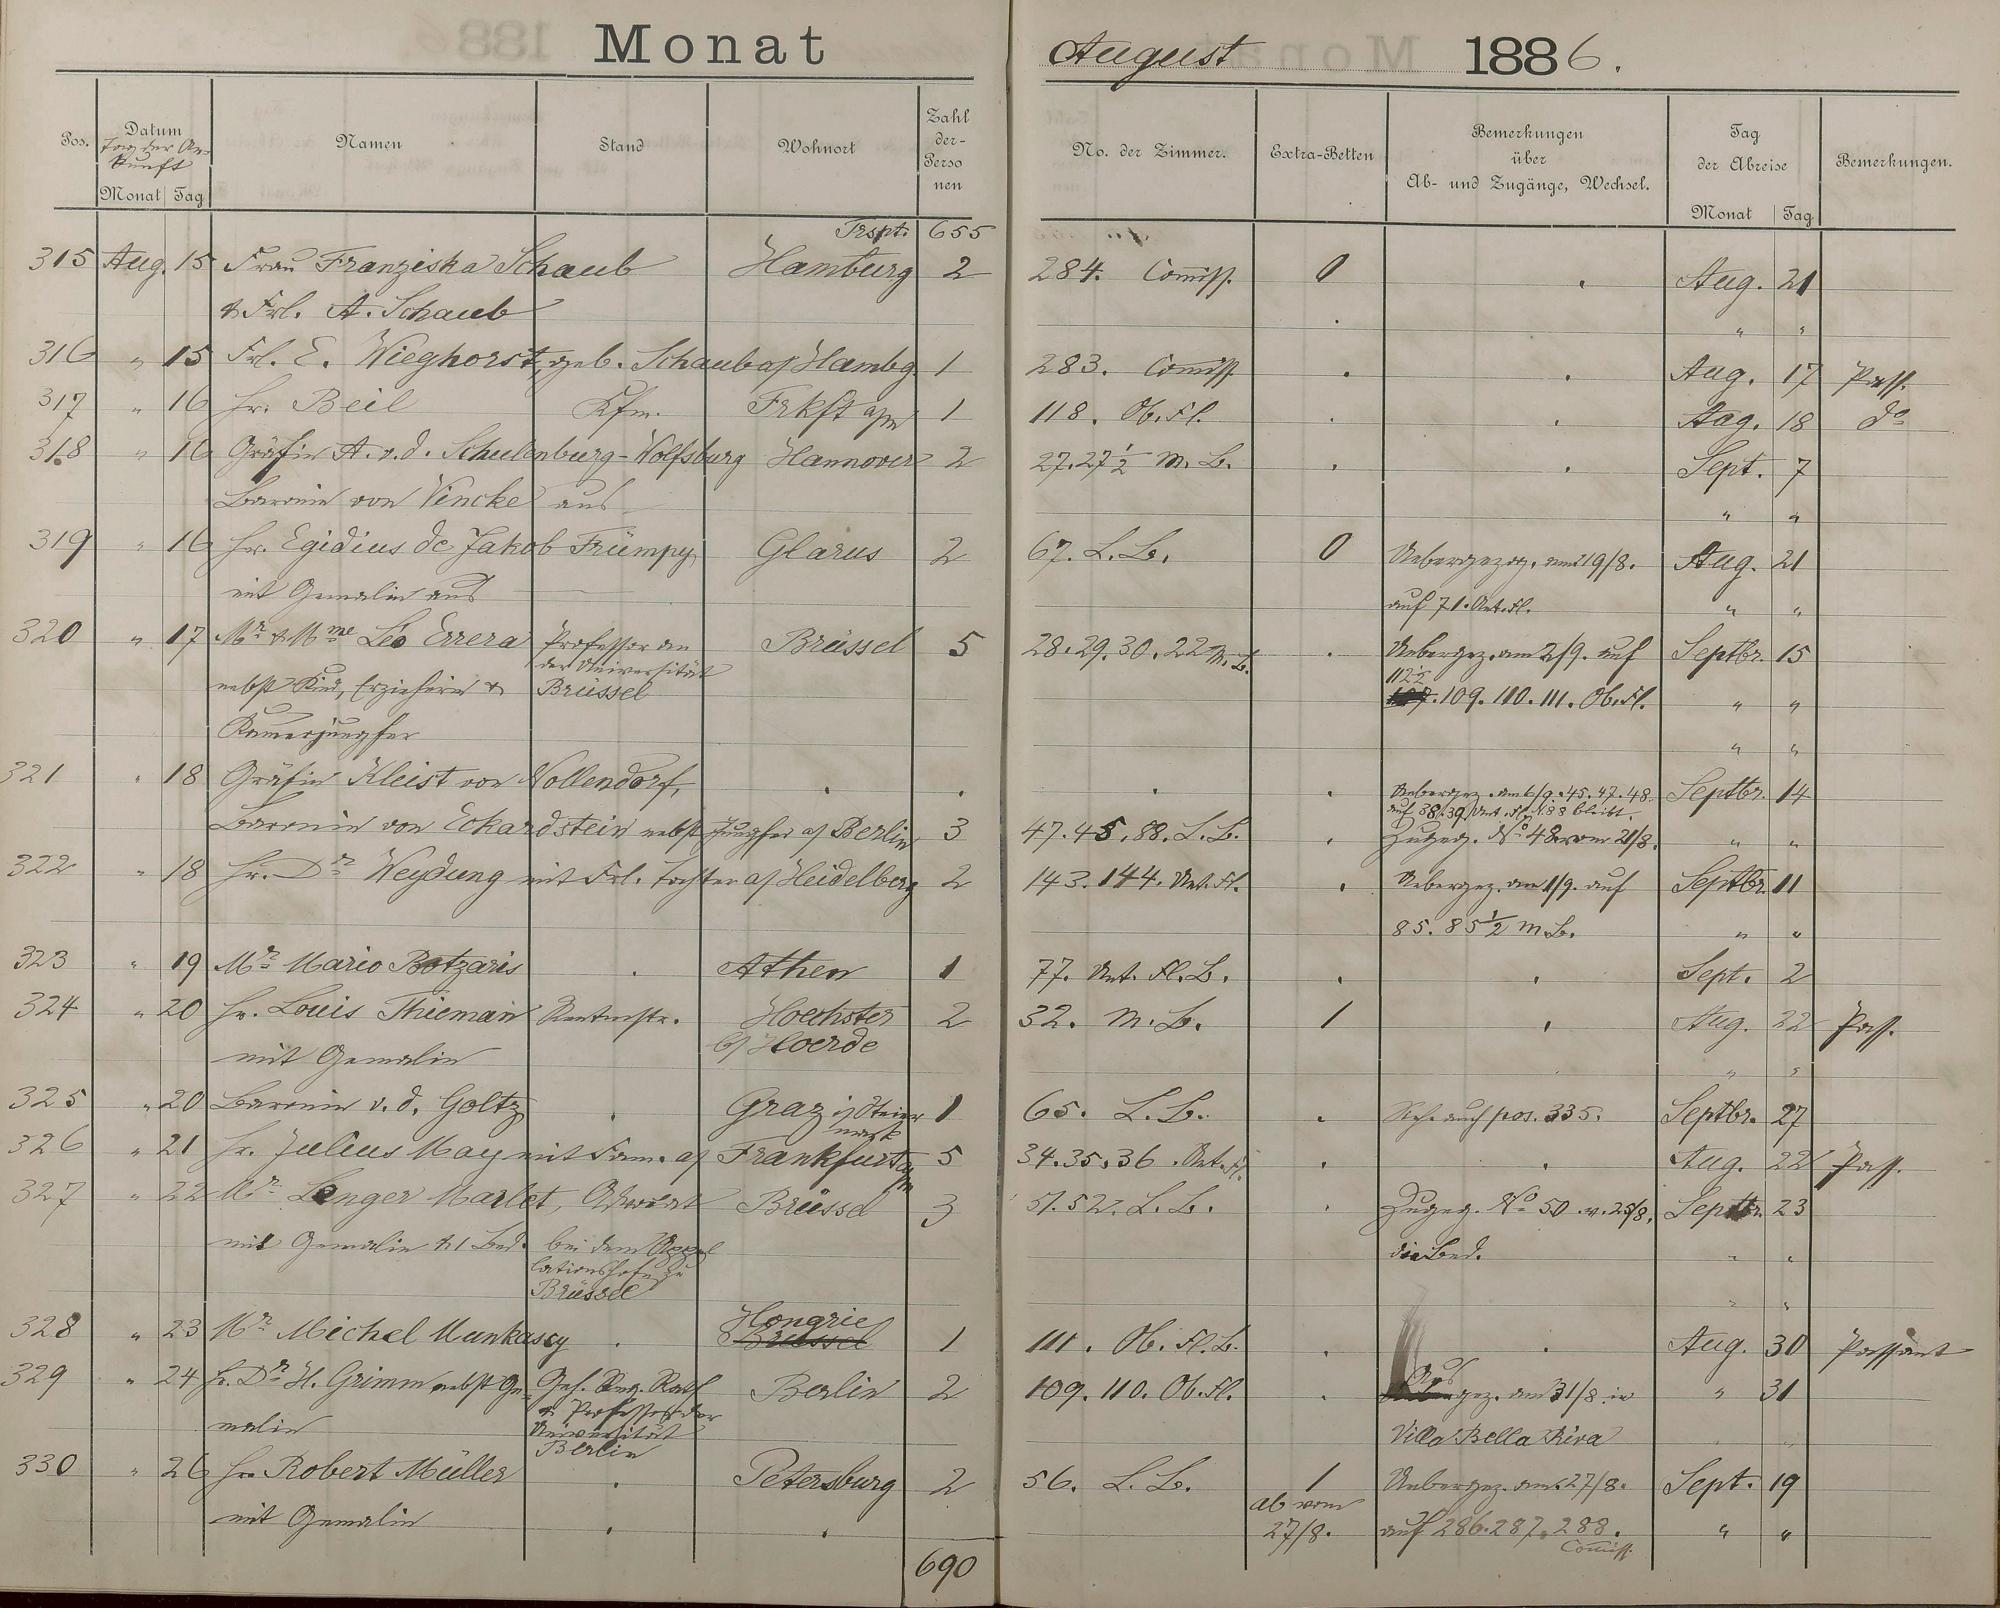 Monat August 1886.
Pos. Datum Namen Stand Wohnort Zahl der Personen No. der Zimmer. Extra-Betten Bemerkungen über Ab- und Zugänge, Wechsel. Tag der Abreise Bemerkungen.
Tag der Ankunft
Monat Tag Monat Tag
Trspt. 655
315 Aug. 15 Frau Franziska Schaub Hamburg 2 284. Comiss. 0 Aug. 21
& Frl. A. Schaub " "
316 " 15 Frl. E. Wieghorst, geb. Schaub a/ Hambg. 1 283. Comiss. Aug. 17 Pass.
317 " 16 Hr. Beil Kfm. Frkft a/m 1 118. Ob. Fl. Aug. 18 do
318 " 16 Gräfin A. v. d. Schulenburg-Wolfsburg Hannover 2 27. 27 1/2 M. B. Sept. 7
Baronin von Vincke aus " "
319 " 16 Hr. Egidius de Jakob Trümpy Glarus 2 67. L. B. 0 Uebergezog. am 19/8. Aug. 21
mit Gemalin aus auf 71. Unt. Fl. " "
320 " 17 Mr & Mme Léo Errera Professor an Brüssel 5 28. 29. 30. 22 M. B. Uebergez. am 2/9. auf Septbr. 15
der Universität
nebst Kind, Erzieherin & Brüssel 112 1/2 109. 110. 111. Ob. Fl. " "
Kamerjungfer " "
321 " 18 Gräfin Kleist von Nollendorf, Uebergez. am 6/9. 45. 47. 48. Septbr. 14
auf 38. 39 Unt. Fl. 88 bleibt.
Baronin von Eckardstein nebst Jungfer a/ Berlin 3 47. 45. 88. L. B. Zugez. No 48 vom 21/8. " "
322 " 18 Hr. Dr Weydung mit Frl. Tochter a/ Heidelberg 2 143. 144. Unt. Fl. Uebergez. am 1/9. auf Septbr. 11
85. 85 1/2 M. B. " "
323 " 19 Mr Mario Botzaris Athen 1 77. Unt. Fl. B. Sept. 2
324 " 20 Hr. Louis Thieman Rentmstr. Hoechster 2 32. M. B. 1 Aug. 22 Pass.
mit Gemalin b/ Hoerde " "
325 " 20 Baronin v. d. Goltz Graz i/ Steiermark 1 65. L. B. Sieh auch pos. 335. Septbr. 27
326 " 21 Hr. Julius May mit Fam. a/ Frankfurt a/m 5 34. 35. 36. Unt. Fl. Aug. 22 Pass.
327 " 22 Mr Lenger Marlet, Advocat Brüssel 3 51. 52. L. B. Zugez. No 50 v. 25/8. Septbr. 23
mit Gemalin & 1 Bed. bei dem Appellationshofe zu Brüssel die Bed. " "
" "
328 " 23 Mr Michel Munkascy Hongrie Brüssel 1 111. Ob. Fl. B. Aug. 30 Passant
329 " 24 Hr. Dr H. Grimm nebst Ge- Geh. Reg. Rath Berlin 2 109. 110. Ob. Fl. Ausgez. am 31/8. in " 31
malin & Professor der Universität Berlin Villa Bella Riva
330 " 26 Hr. Robert Müller Petersburg 2 56. L. B. 1 Uebergez. am 27/8. Sept. 19
mit Gemalin ab vom 27/8. auf 286. 287. 288. Comiss. " "
690